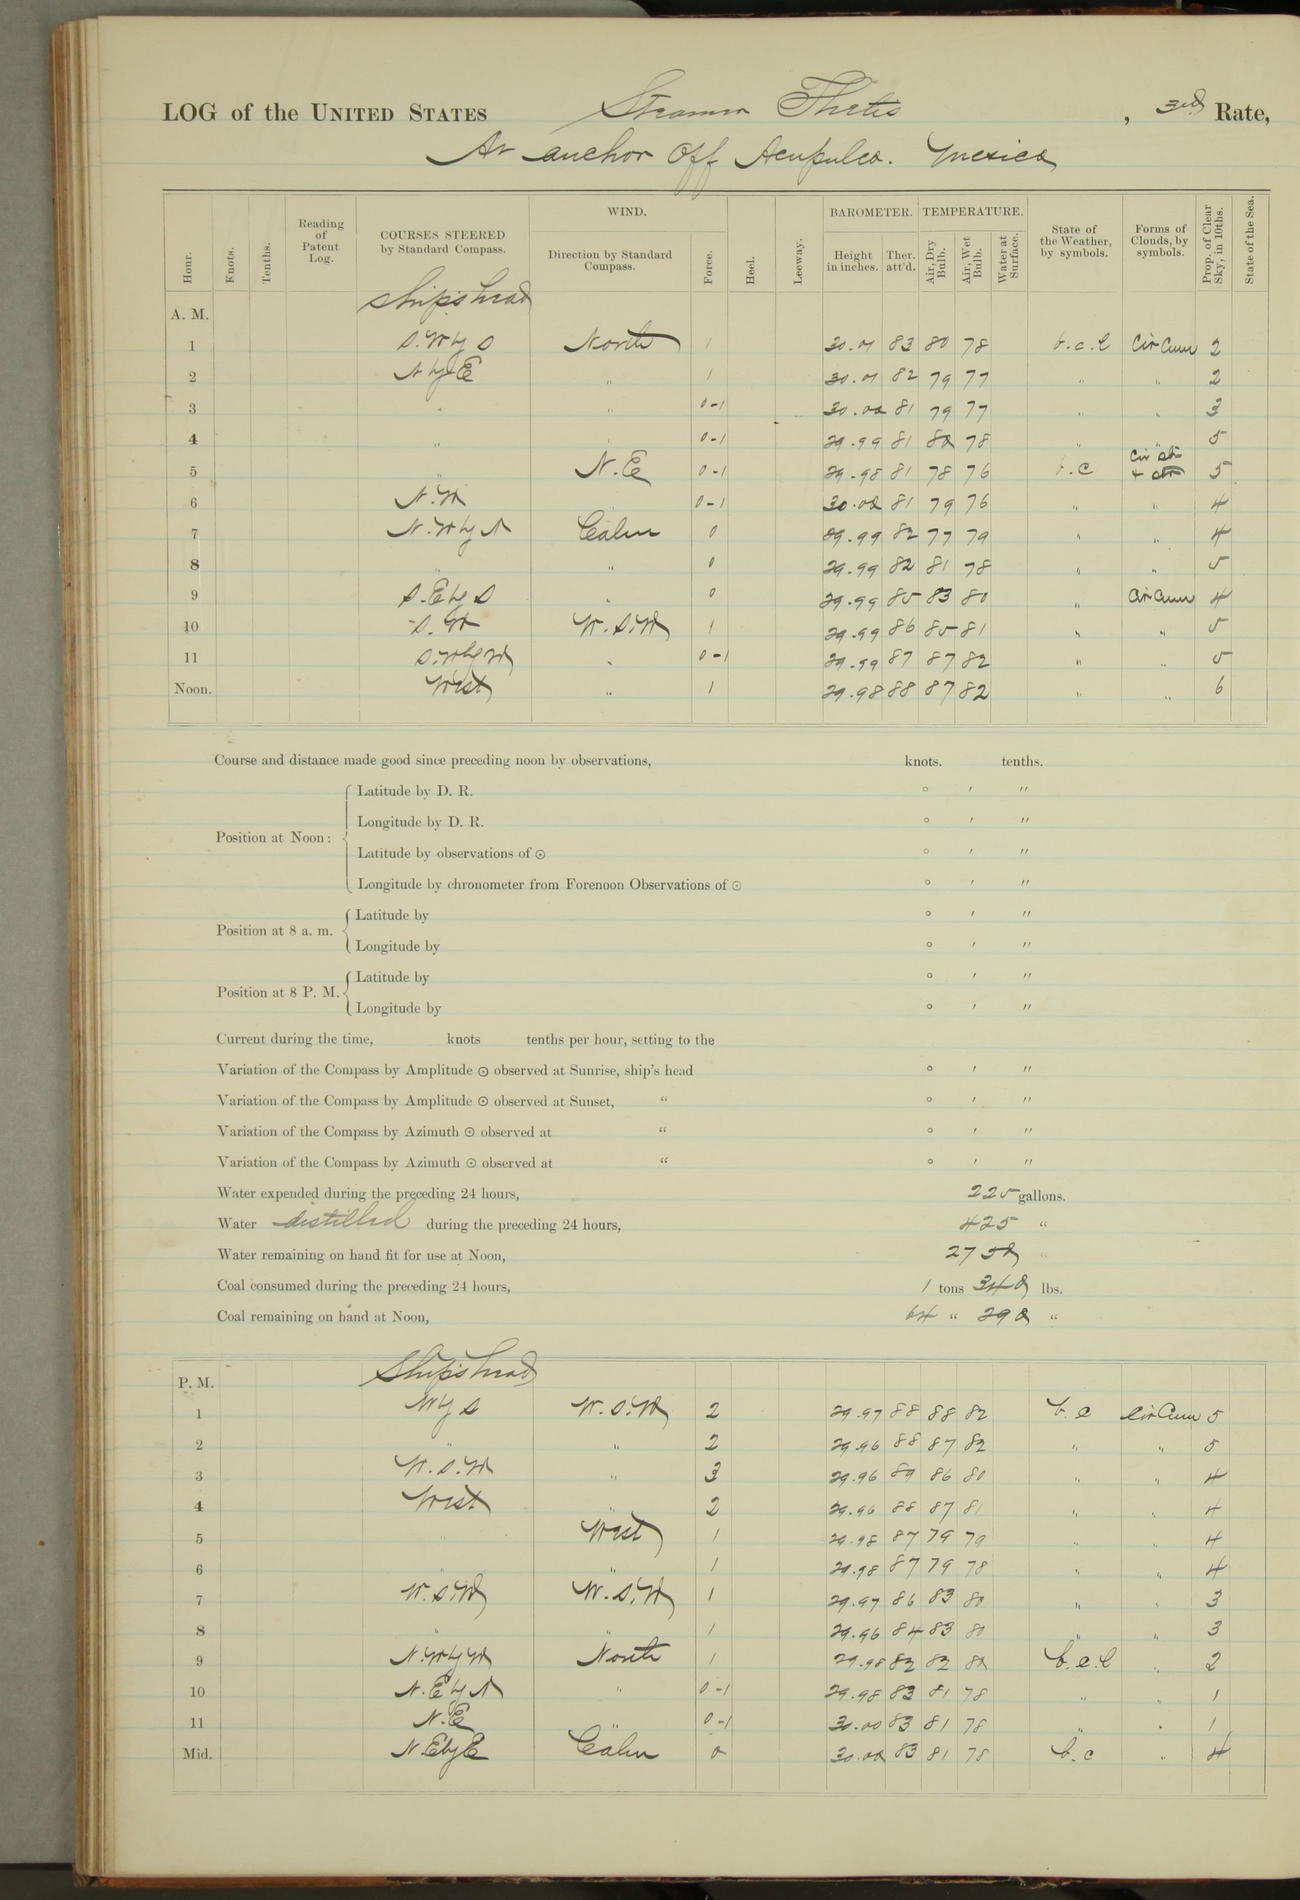 LOG of the UNITED STATES Steamer Thetis , 3rd Rate,
At anchor off Acapulco. Mexico
Hour. Knots. Tenths. Reading of Patent Log. COURSES STEERED by Standard Compass. WIND. Direction by Standard Compass. Force. Heel. Leeway. BAROMETER. Height in inches. Ther. att'd. TEMPERATURE. Air, Dry Bulb. Air, Wet Bulb. Water at Surface. State of the Weather, by symbols. Forms of Clouds, by symbols. Prop. of Clear Sky, in 10ths. State of the Sea.
Ship's head
A. M.
1 S.W by S North 1 30.01 83 80 78 b.c.l Cir Cum 2
2 N by E " 1 30.01 82 79 77 " " 2
3 " " 0-1 30.00 81 79 77 " " 3
4 " " 0-1 29.99 81 80 78 " " 5
5 " N.E 0-1 29.98 81 78 76 b.c Cir St + Str 5
6 N.W " 0-1 30.00 81 79 76 " " 4
7 N.W by N Calm 0 29.99 82 77 79 " " 4
8 " " 0 29.99 82 81 78 " " 5
9 S.E by S " 0 29.99 85 83 80 " Cir Cum 4
10 S.W W.S.W 1 29.99 86 85 81 " " 5
11 S.W by W " 0-1 29.99 87 87 82 " " 5
Noon. West " 1 29.98 88 87 82 " " 6
Course and distance made good since preceding noon by observations, knots. tenths.
Position at Noon: Latitude by D. R. ° ′ ″
Longitude by D. R. ° ′ ″
Latitude by observations of ☉ ° ′ ″
Longitude by chronometer from Forenoon Observations of ☉ ° ′ ″
Position at 8 a. m. Latitude by ° ′ ″
Longitude by ° ′ ″
Position at 8 P. M. Latitude by ° ′ ″
Longitude by ° ′ ″
Current during the time, knots tenths per hour, setting to the
Variation of the Compass by Amplitude ☉ observed at Sunrise, ship's head ° ′ ″
Variation of the Compass by Amplitude ☉ observed at Sunset, “ ° ′ ″
Variation of the Compass by Azimuth ☉ observed at “ ° ′ ″
Variation of the Compass by Azimuth ☉ observed at “ ° ′ ″
Water expended during the preceding 24 hours, 225 gallons.
Water distilled during the preceding 24 hours, 425 “
Water remaining on hand fit for use at Noon, 2750 “
Coal consumed during the preceding 24 hours, 1 tons 340 lbs.
Coal remaining on hand at Noon, 64 “ 290 “
Ship's head
P. M.
1 W by S W.S.W 2 29.97 88 88 82 b.c Cir Cum 5
2 " " 2 29.96 88 87 82 " " 5
3 W.S.W " 3 29.96 89 86 80 " " 4
4 West " 2 29.96 88 87 81 " " 4
5 " West 1 29.98 87 79 79 " " 4
6 " " 1 29.98 87 79 78 " " 4
7 W.S.W W.S.W 1 29.97 86 83 80 " " 3
8 " " 1 29.96 84 83 80 " " 3
9 N.W by W North 1 29.98 82 82 80 b.c.l " 2
10 N.E by N " 0-1 29.98 83 81 78 " " 1
11 N.E " 0-1 30.00 83 81 78 " " 1
Mid. N.E by E Calm 0 30.00 83 81 78 b.c " 4